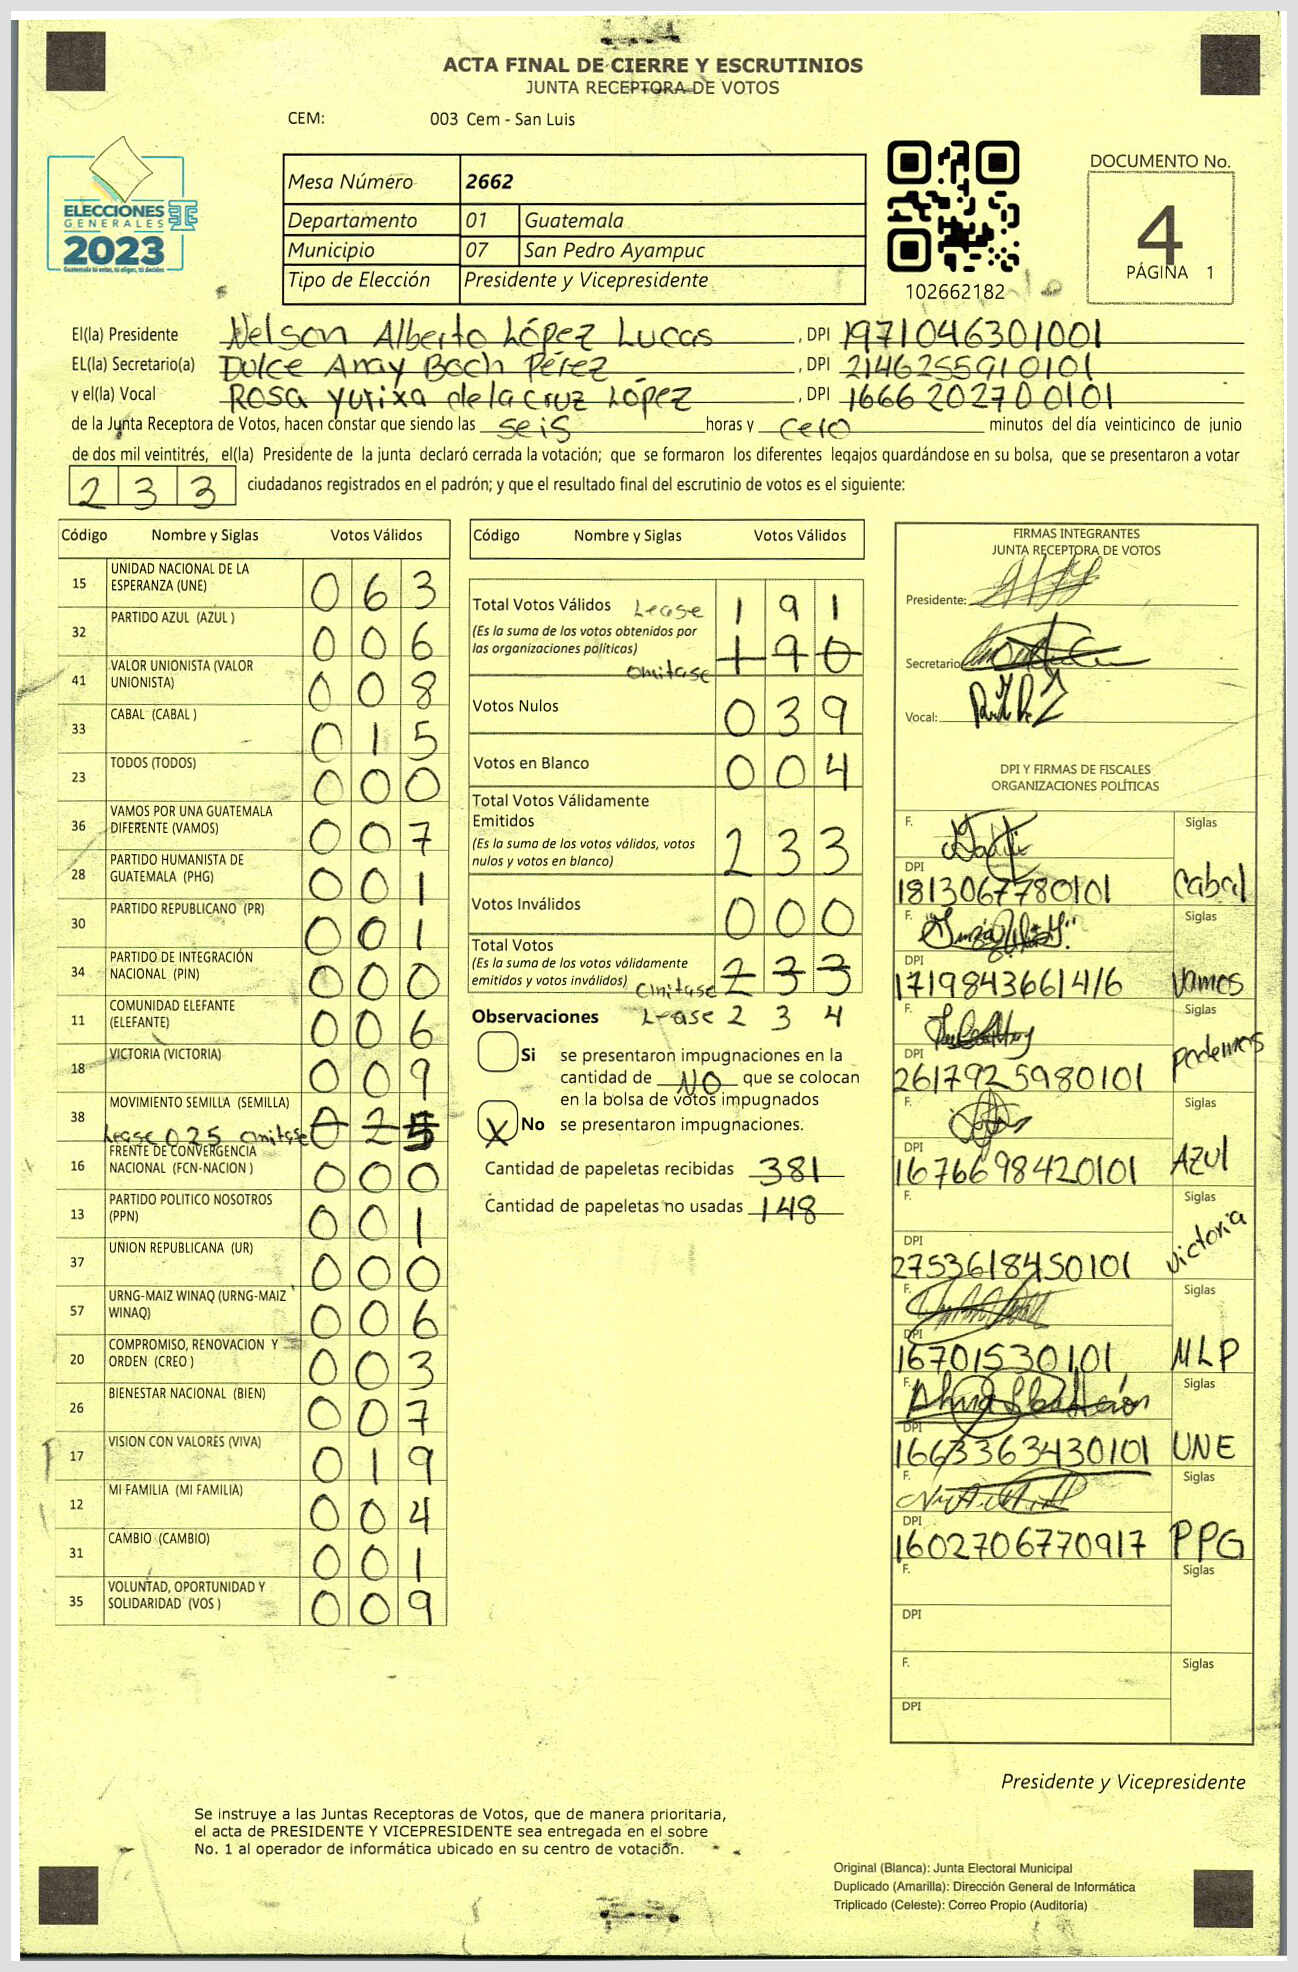 ACTA FINAL DE CIERRE Y ESCRUTINIOS
JUNTA RECEPTORA DE VOTOS
CEM: 003 Cem - San Luis
ELECCIONES
GENERALES
2023
Guatemala tú eres, tú eliges, tú decides
Mesa Número 2662
Departamento 01 Guatemala
Municipio 07 San Pedro Ayampuc
Tipo de Elección Presidente y Vicepresidente
102662182
DOCUMENTO No.
4
PÁGINA 1
El(la) Presidente Nelson Alberto López Lucas, DPI 1971046301001
EL(la) Secretario(a) Dulce Anay Boch Pérez, DPI 2146255910101
y el(la) Vocal Rosa Yutixa de la Cruz López, DPI 1666202700101
de la Junta Receptora de Votos, hacen constar que siendo las seis horas y cero minutos del día veinticinco de junio
de dos mil veintitrés, el(la) Presidente de la junta declaró cerrada la votación; que se formaron los diferentes legajos guardándose en su bolsa, que se presentaron a votar
233 ciudadanos registrados en el padrón; y que el resultado final del escrutinio de votos es el siguiente:
Código Nombre y Siglas Votos Válidos
15 UNIDAD NACIONAL DE LA ESPERANZA (UNE) 063
32 PARTIDO AZUL (AZUL ) 006
41 VALOR UNIONISTA (VALOR UNIONISTA) 008
33 CABAL (CABAL ) 015
23 TODOS (TODOS) 000
36 VAMOS POR UNA GUATEMALA DIFERENTE (VAMOS) 007
28 PARTIDO HUMANISTA DE GUATEMALA (PHG) 001
30 PARTIDO REPUBLICANO (PR) 001
34 PARTIDO DE INTEGRACIÓN NACIONAL (PIN) 000
11 COMUNIDAD ELEFANTE (ELEFANTE) 006
18 VICTORIA (VICTORIA) 009
38 MOVIMIENTO SEMILLA (SEMILLA) Lease 025 omitase 025
16 FRENTE DE CONVERGENCIA NACIONAL (FCN-NACION ) 000
13 PARTIDO POLITICO NOSOTROS (PPN) 001
37 UNION REPUBLICANA (UR) 000
57 URNG-MAIZ WINAQ (URNG-MAIZ WINAQ) 006
20 COMPROMISO, RENOVACION Y ORDEN (CREO ) 003
26 BIENESTAR NACIONAL (BIEN) 007
17 VISION CON VALORES (VIVA) 019
12 MI FAMILIA (MI FAMILIA) 004
31 CAMBIO (CAMBIO) 001
35 VOLUNTAD, OPORTUNIDAD Y SOLIDARIDAD (VOS ) 009
Código Nombre y Siglas Votos Válidos
Total Votos Válidos Lease 191
(Es la suma de los votos obtenidos por
las organizaciones políticas) omitase 190
Votos Nulos 039
Votos en Blanco 004
Total Votos Válidamente
Emitidos
(Es la suma de los votos válidos, votos
nulos y votos en blanco) 233
Votos Inválidos 000
Total Votos
(Es la suma de los votos válidamente
emitidos y votos inválidos) Omitase 233
Observaciones Lease 234
Si se presentaron impugnaciones en la
cantidad de NO que se colocan
en la bolsa de votos impugnados
X No se presentaron impugnaciones.
Cantidad de papeletas recibidas 381
Cantidad de papeletas no usadas 148
FIRMAS INTEGRANTES
JUNTA RECEPTORA DE VOTOS
Presidente:
Secretario
Vocal:
DPI Y FIRMAS DE FISCALES
ORGANIZACIONES POLÍTICAS
F. Siglas
DPI
1813067780101 Cabal
F. Siglas
DPI
1719843661416 Vamos
F. Siglas
DPI
2617925980101 Podemos
F. Siglas
DPI
1676698420101 AZUl
F. Siglas
DPI
2753618450101 victoria
F. Siglas
DPI
16701530101 MLP
F. Siglas
DPI
1663363430101 UNE
F. Siglas
DPI
1602706770917 PPG
F. Siglas
DPI
F. Siglas
DPI
Presidente y Vicepresidente
Se instruye a las Juntas Receptoras de Votos, que de manera prioritaria,
el acta de PRESIDENTE Y VICEPRESIDENTE sea entregada en el sobre
No. 1 al operador de informática ubicado en su centro de votación.
Original (Blanca): Junta Electoral Municipal
Duplicado (Amarilla): Dirección General de Informática
Triplicado (Celeste): Correo Propio (Auditoría)